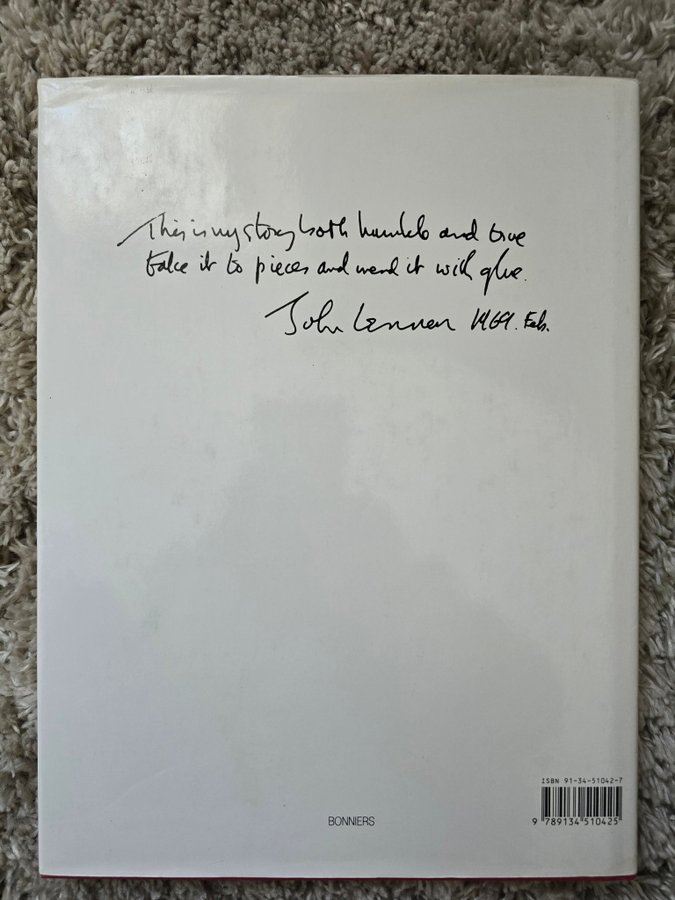 This is my story both humble and true
take it to pieces and mend it with glue.
John Lennon 1969. Feb.
ISBN 91-34-51042-7
BONNIERS
9 789134 510425